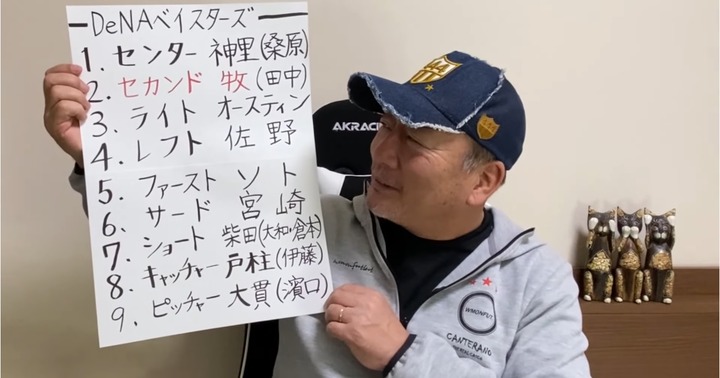 DeNAベイスターズ
1. センター 神里(桑原)
2. セカンド 牧(田中)
3. ライト オースティン
4. レフト 佐野
5. ファースト ソト
6. サード 宮崎
7. ショート 柴田(大和・倉本)
8. キャッチャー 戸柱(伊藤)
9. ピッチャー 大貫(濱口)
AKRACING
WMONFUT
CANTERANO